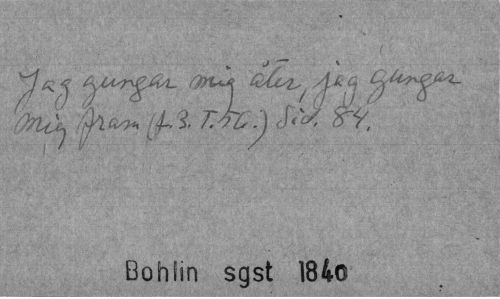 Jag gungar mig åter, jag gungar
mig fram (f. 3. T. 56.) Sid. 84.
Bohlin sgst 1840